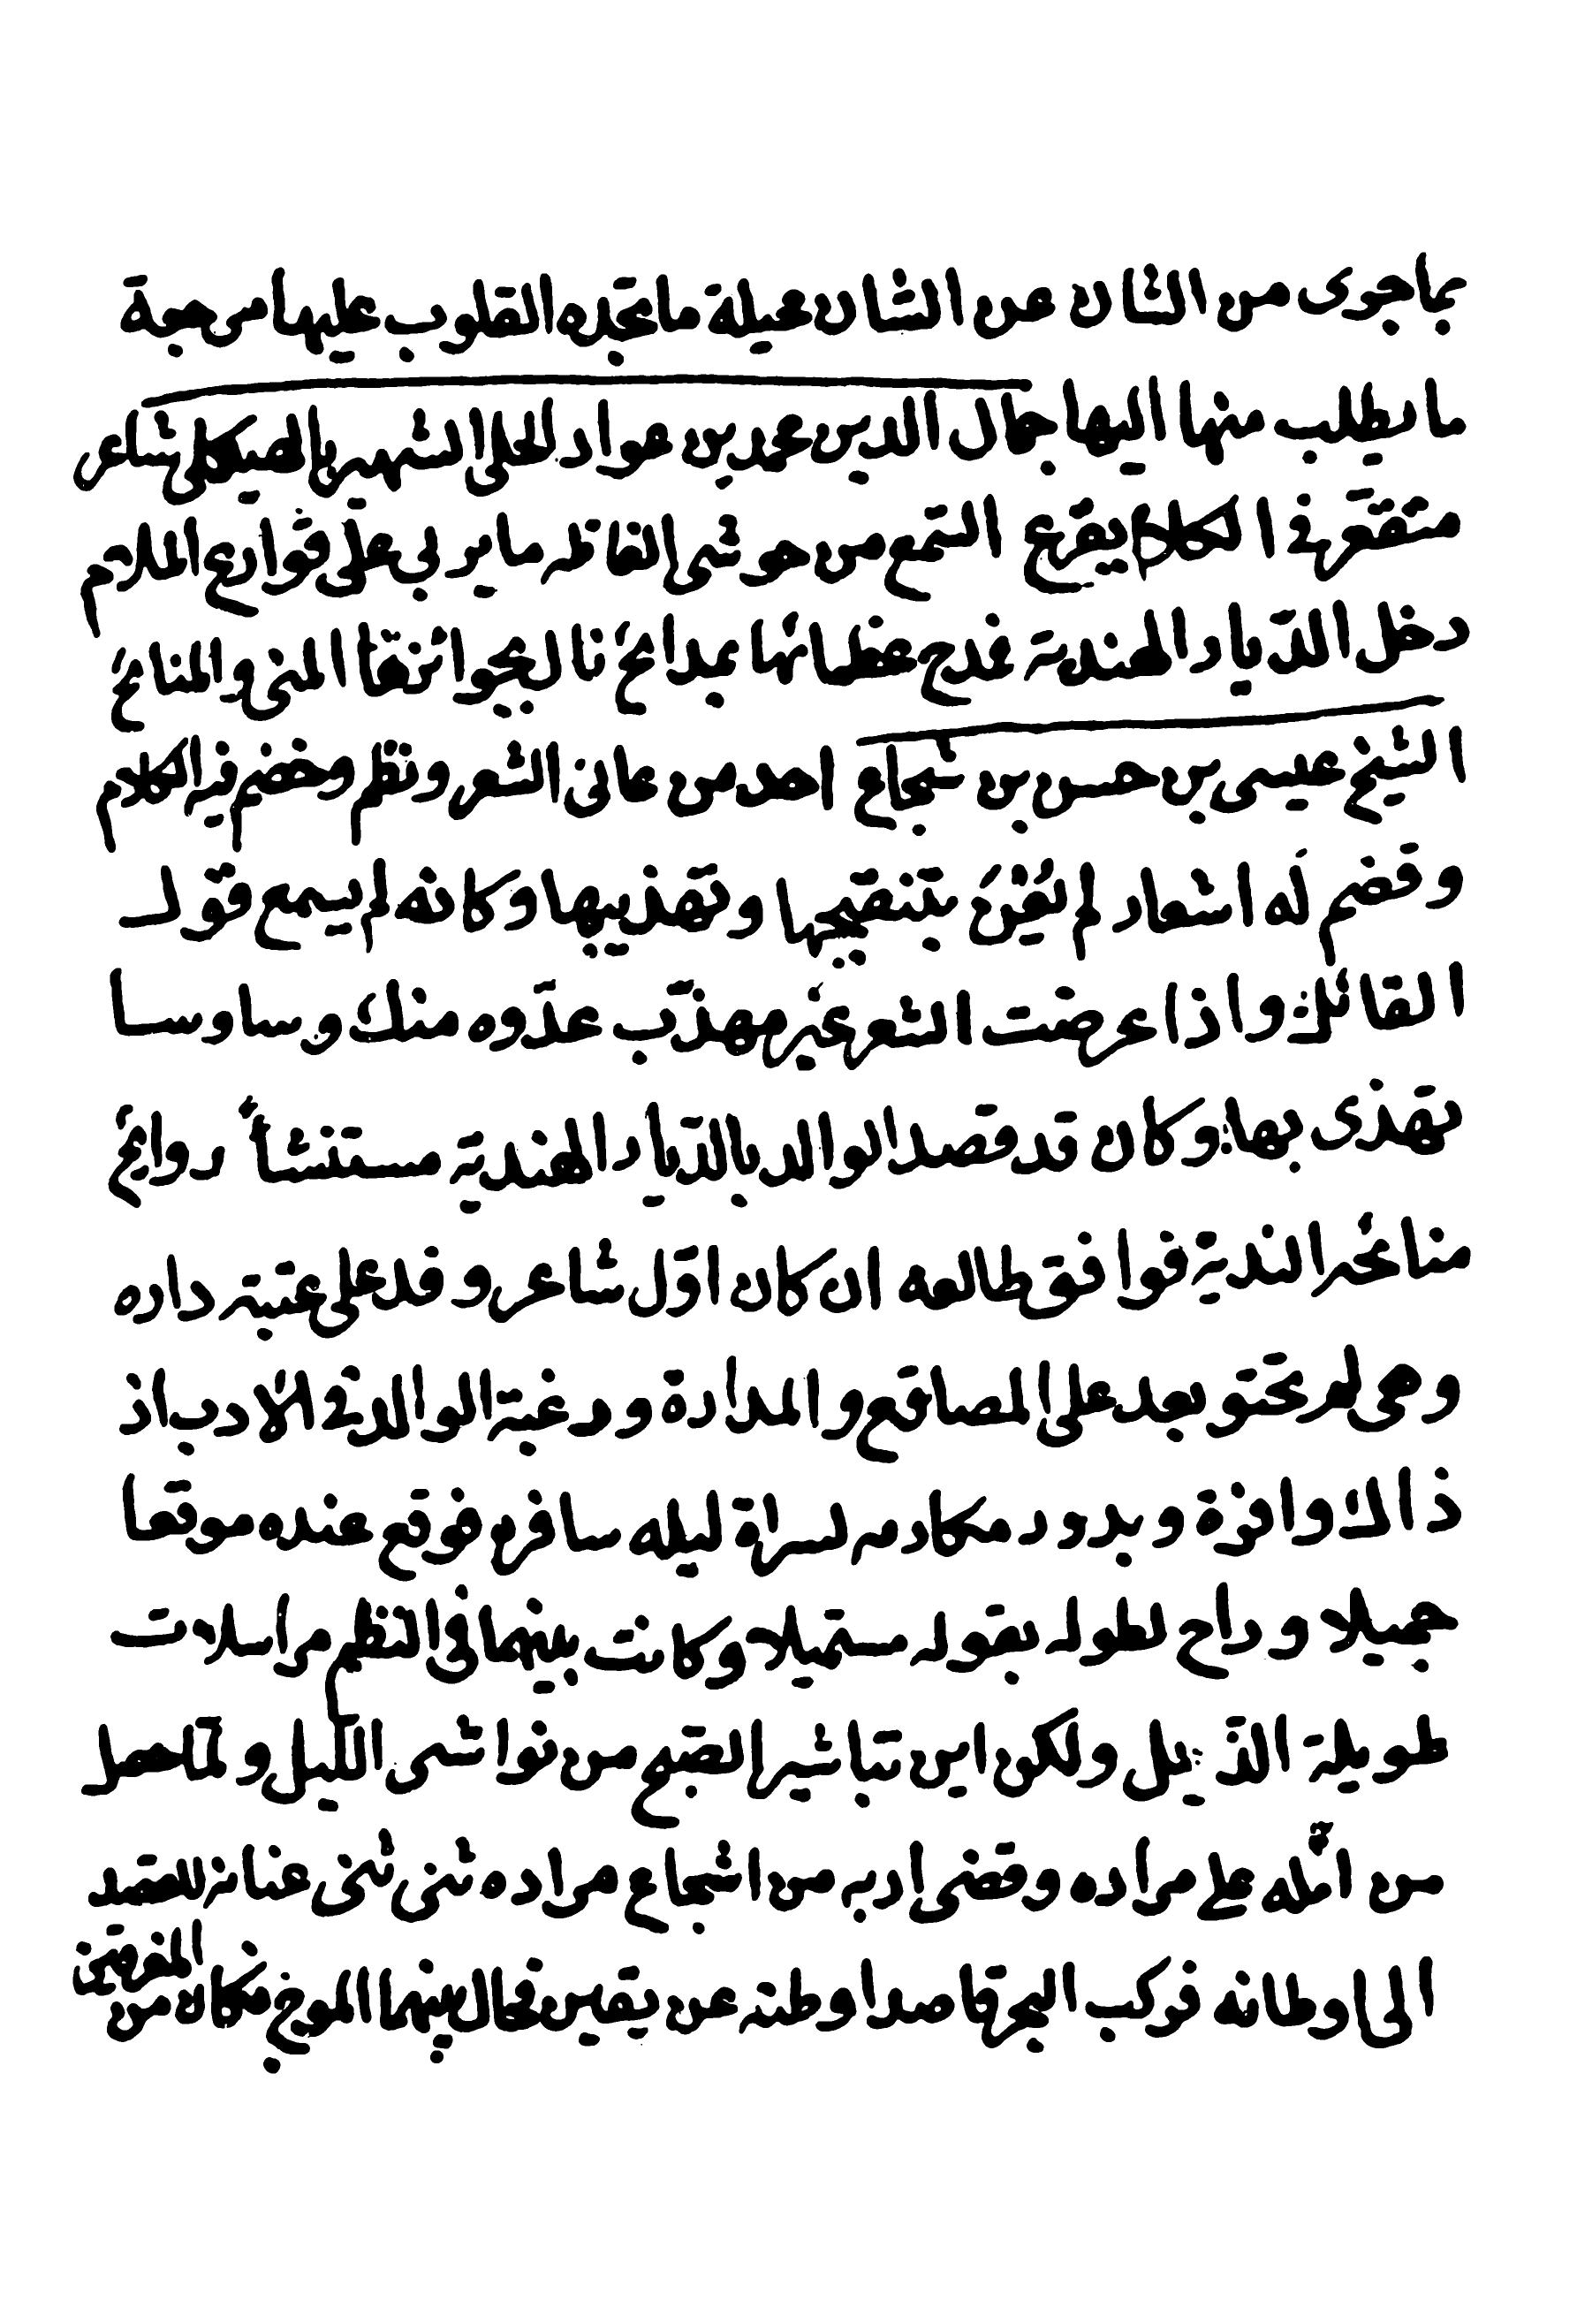 بما جرى من الشان عن الشان محيلة ما تجده القلوب عليها مرحبة
ما يطلب منها اليها جمال الدين محمد بن عواد الحلى الشهير بالهيكلى شاعر
متقعر فى الكلام يقرع السمع من حوشى الفاظه ما يربى على قوارع الملام
دخل الديار الهندية فمدح عظمائها بمدائح نال بجوائزها المنى والمنائح
الشيخ عيسى بن حسن بن شجاع احد من عانى الشعر ونظم وخضم فى الكلام
وقضم له اشعار لم يُعْنَ بتنقيحها وتهذيبها وكانه لم يسمع قول
القائل واذا عرضت الشعر غير مهذّب عدّوه منك وساوسا
تهذى بها وكان قد قصد الوالد بالديار الهندية مستنشأً روائح
منائحه الندية فوافق طالعه ان كان اوّل شاعر وفد على عتبة داره
وهى لم تحتو بعد على المصاقع والمدارة ورغبة الوالد فى الادب اذ
ذاك وافرة وبدور مكارمه لسراة ليله سافره فوقع عنده موقعا
جميلا وراح لطوله بقوله مستميلا وكانت بينهما فى النظم مراسلات
طويلة الذّيل ولكن اين تباشير الصّبح من نواشى الليل ولمّا حصل
من امّله على مراده وقضى اربه من اشجاع مراده ثنى ثنى عنانه للعقيد
الى اوطانه فركب البحر قاصدا وطنه عن يقين فحال بينهما الموج فكان من المغرقين